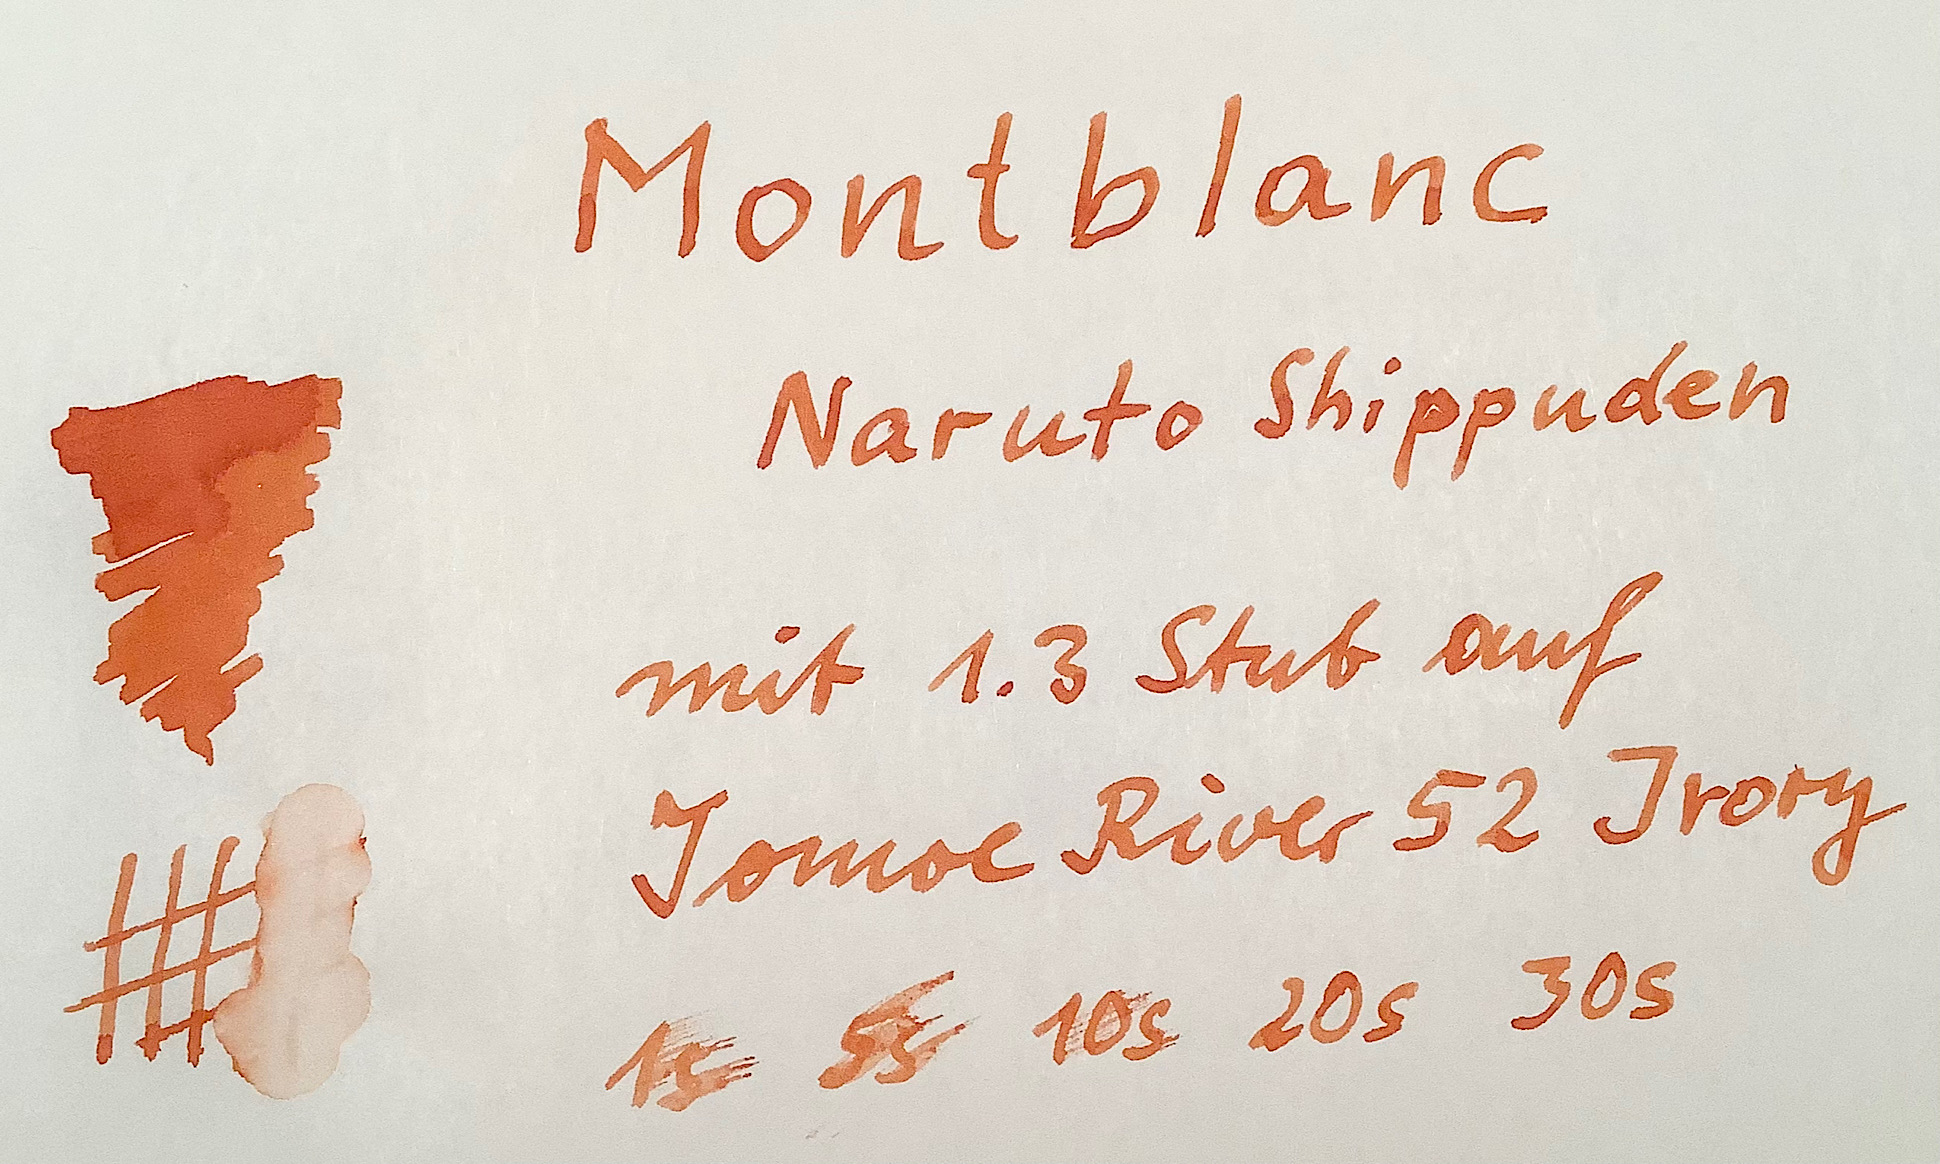 Montblanc
Naruto Shippuden
mit 1.3 Stub auf
Tomoe River 52 Ivory
1s 5s 10s 20s 30s